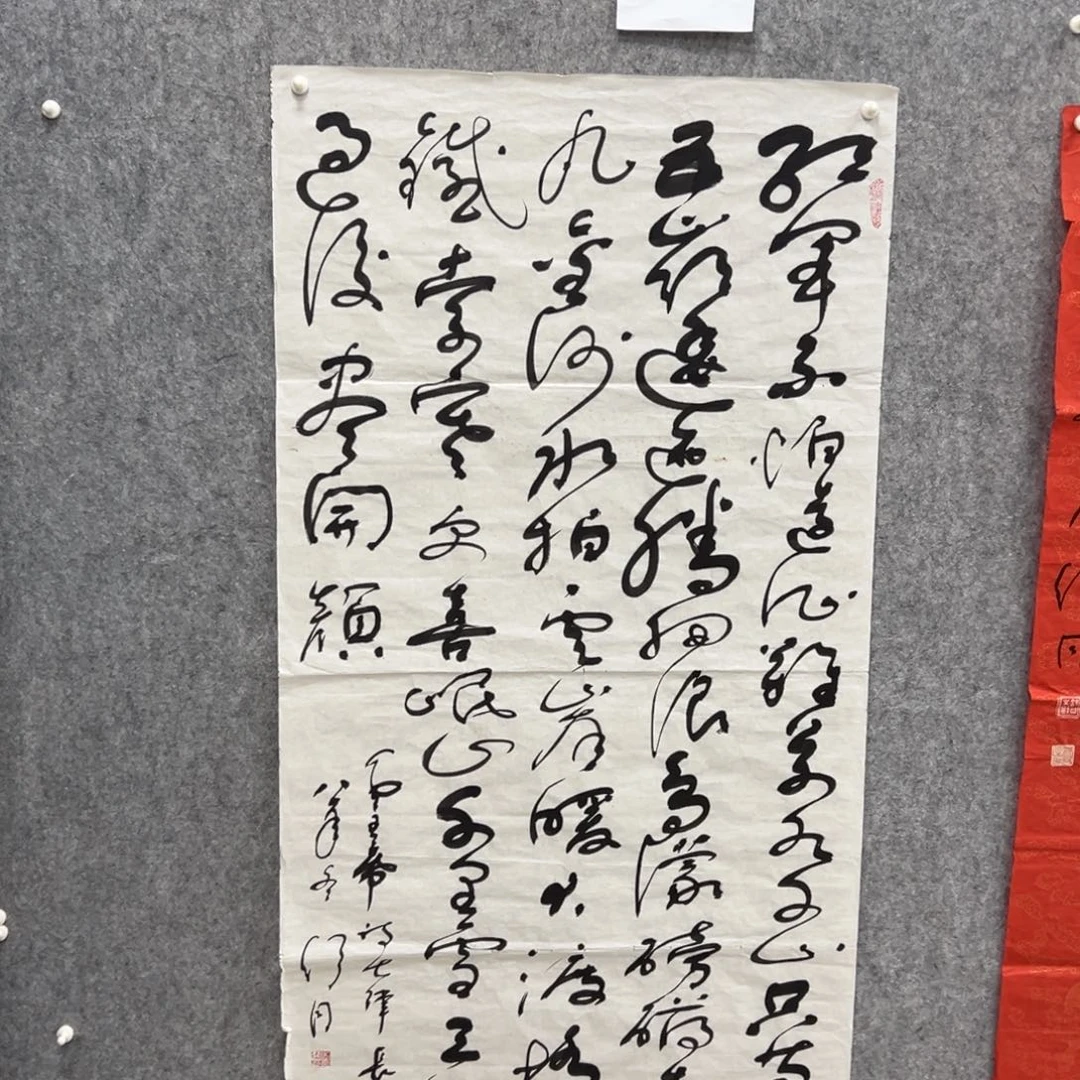 紅軍不怕遠征難萬水千山只等
五嶺逶迤騰細浪烏濛磅礴走
丸金沙水拍雲崖暖大渡橋
鐵索寒更喜岷山千里雪三
過後盡開顏
主席詩七律長
八年冬